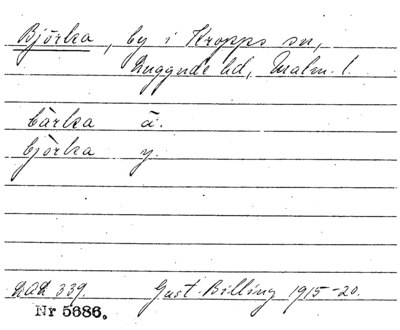 Björka, by i Kropps sn,
Luggude hd, Malm. l.
bärka ä.
björka y.
DAL 339. Gust. Billing 1915-20.
Nr 5686.